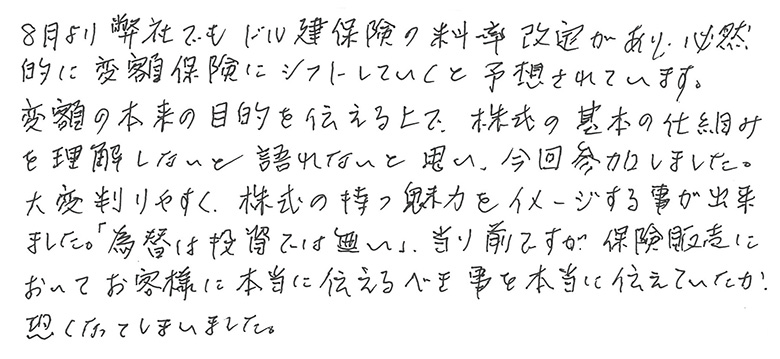 8月より弊社でもドル建保険の料率改定があり、必然
的に変額保険にシフトしていくと予想されています。
変額の本来の目的を伝える上で、株式の基本の仕組み
を理解しないと語れないと思い、今回参加しました。
大変判りやすく、株式の持つ魅力をイメージする事が出来
ました。「為替は投資では無い」、当り前ですが保険販売に
おいてお客様に本当に伝えるべき事を本当に伝えていたか、
恐くなってしまいました。